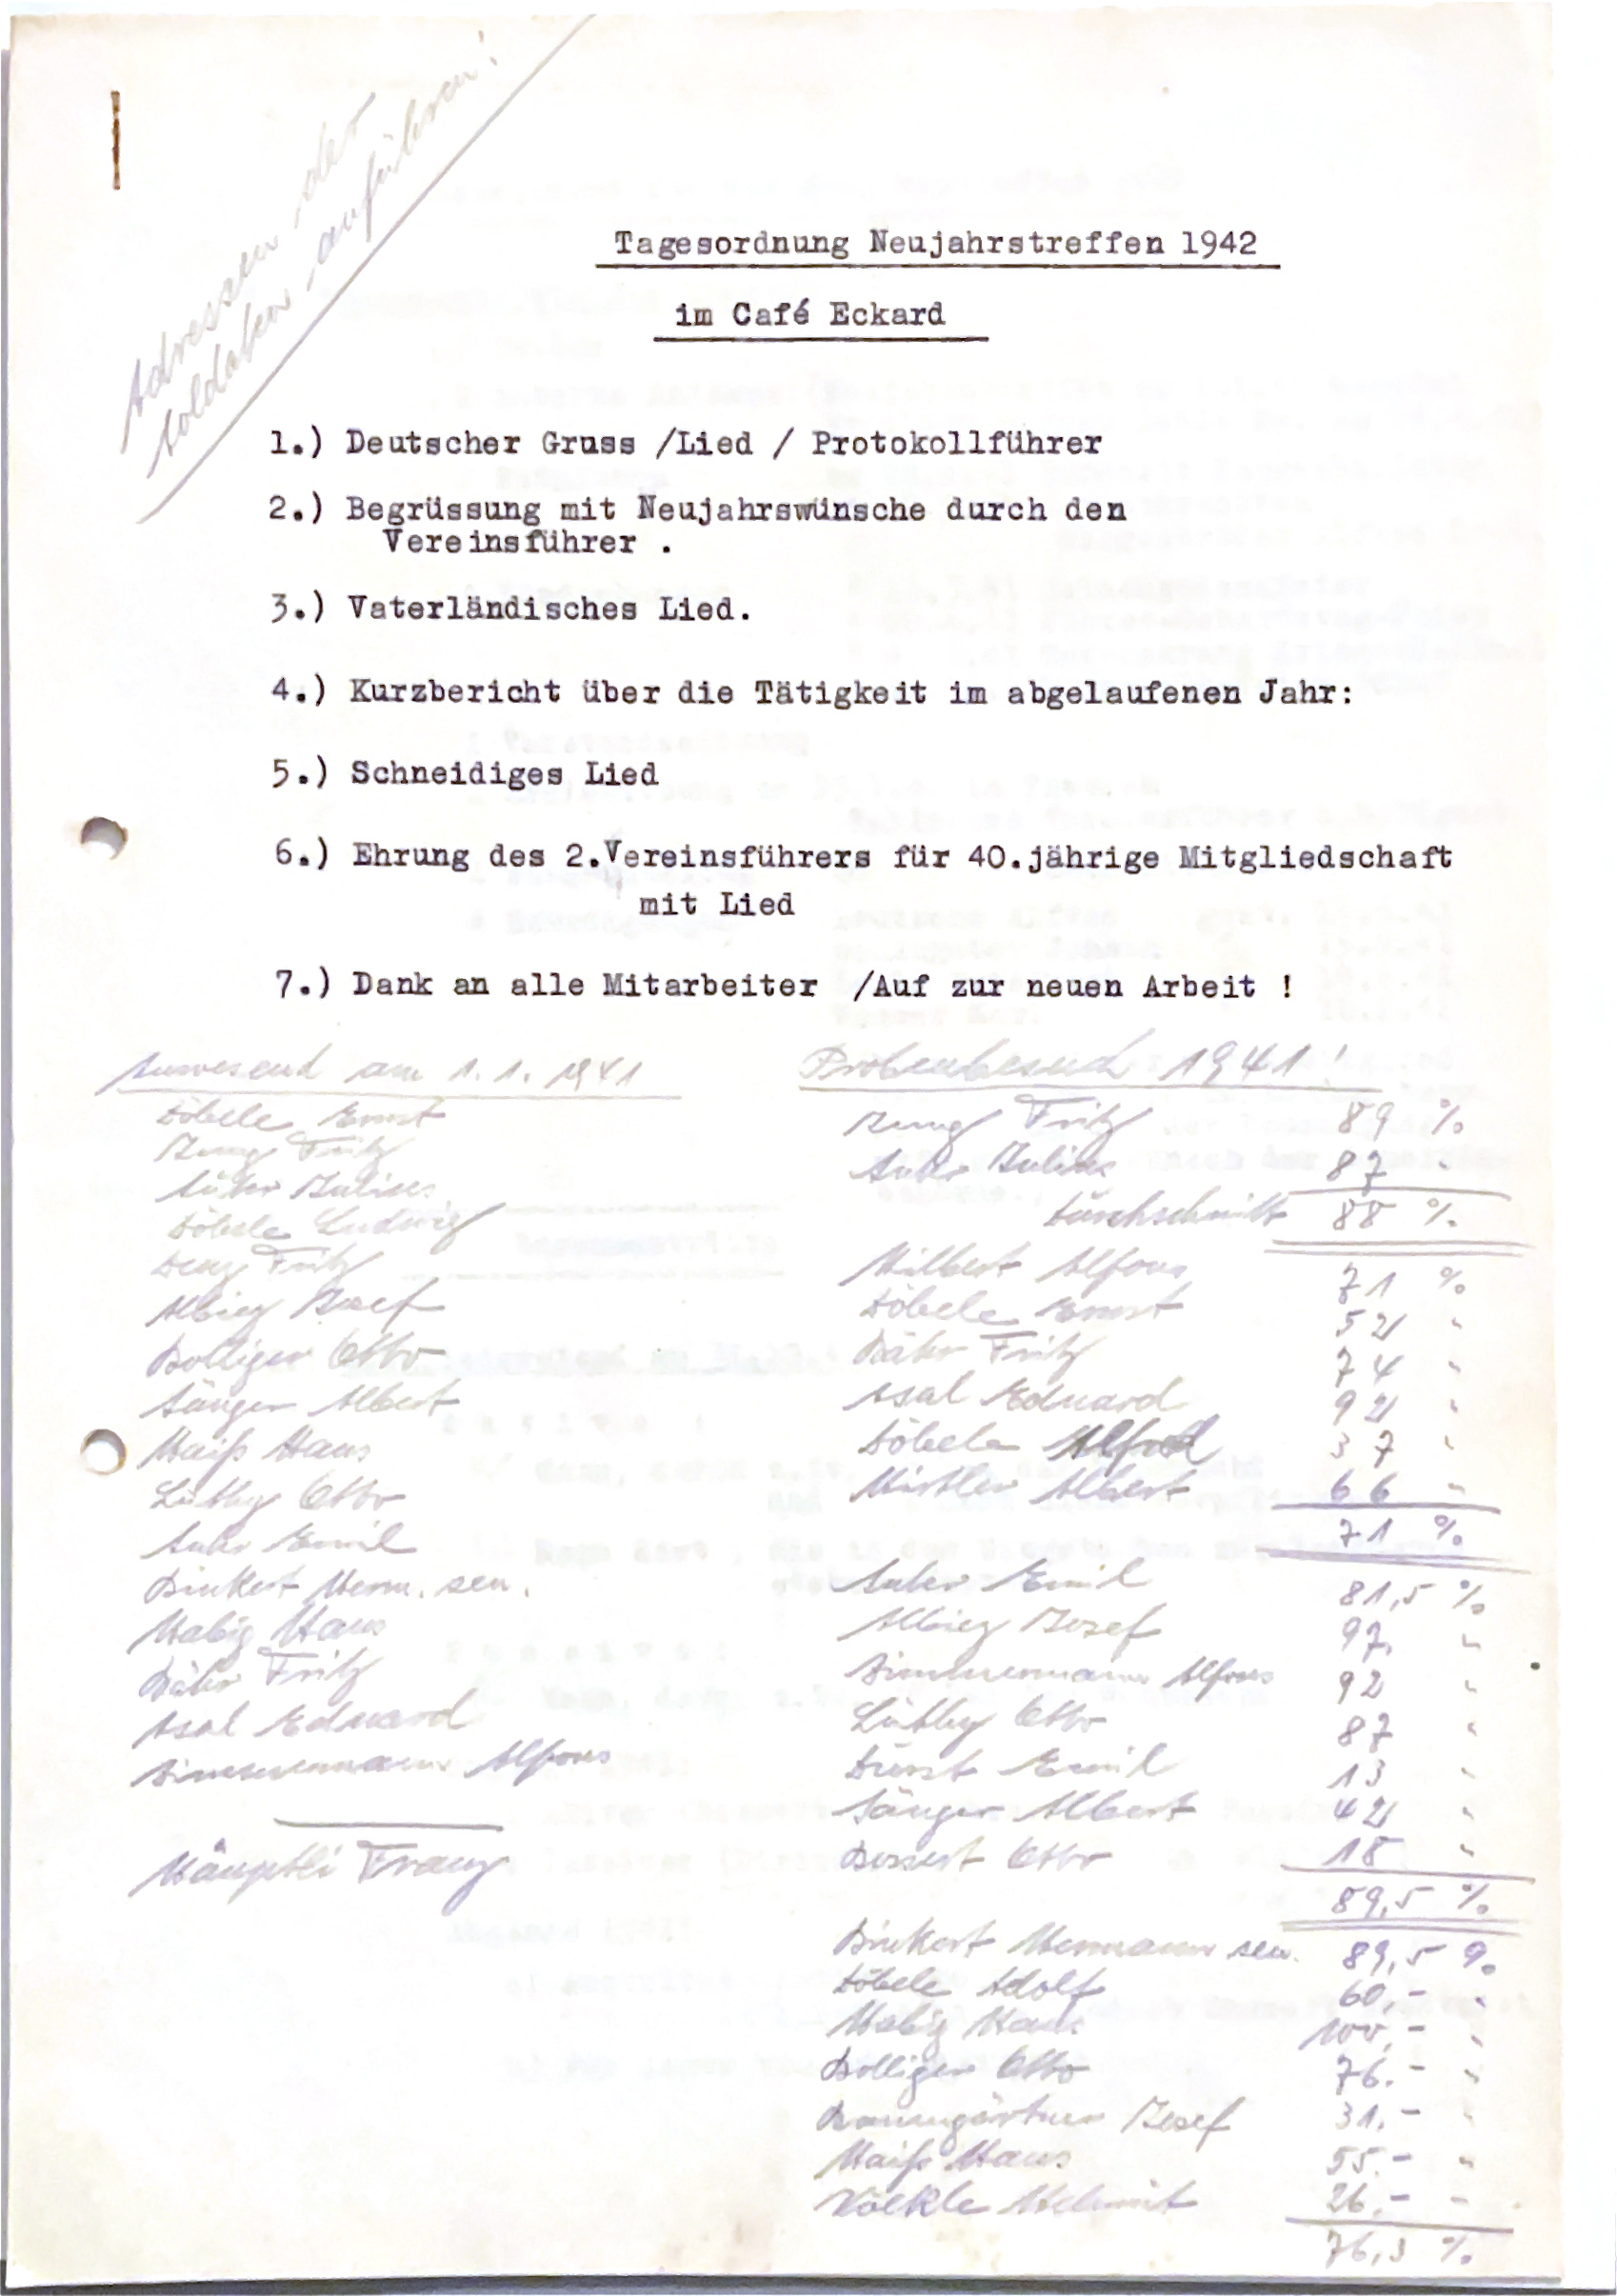 Adressen der
Soldaten anführen!
Tagesordnung Neujahrstreffen 1942
im Café Eckard
1.) Deutscher Gruss /Lied / Protokollführer
2.) Begrüssung mit Neujahrswünsche durch den
Vereinsführer .
3.) Vaterländisches Lied.
4.) Kurzbericht über die Tätigkeit im abgelaufenen Jahr:
5.) Schneidiges Lied
6.) Ehrung des 2.Vereinsführers für 40.jährige Mitgliedschaft
mit Lied
7.) Dank an alle Mitarbeiter /Auf zur neuen Arbeit !
Anwesend am 1.1.1941
Döbele Ernst
Fritz
Suter Julius
Döbele Ludwig
Denz Fritz
Albiez Josef
Bolliger Otto
Sänger Albert
Maiß Hans
Lüthy Otto
Suter Emil
Binkert Herm. sen.
Mabig Hans
Bähr Fritz
Asal Eduard
Zimmermann Alfons
Franz
Probenbesuch 1941!
Fritz 89 %
Suter Julius 87 "
Durchschnitt 88 %
Hilbert Alfons 71 %
Döbele Ernst 52 "
Bähr Fritz 74 "
Asal Eduard 92 "
Döbele Alfred 37 "
Albert 66 "
71 %
Suter Emil 81,5 %
Albiez Josef 97. "
Zimmermann Alfons 92 "
Lüthy Otto 87 "
Emil 13 "
Sänger Albert 42 "
Otto 18 "
89,5 %
Binkert Hermann sen. 89,5 %
Döbele Adolf 60,- "
Mabig Hans 100,- "
Bolliger Otto 76.- "
Baumgartner Josef 31.- "
Maiß Hans 55.- "
Völkle Helmut 26.- -
76,3 %